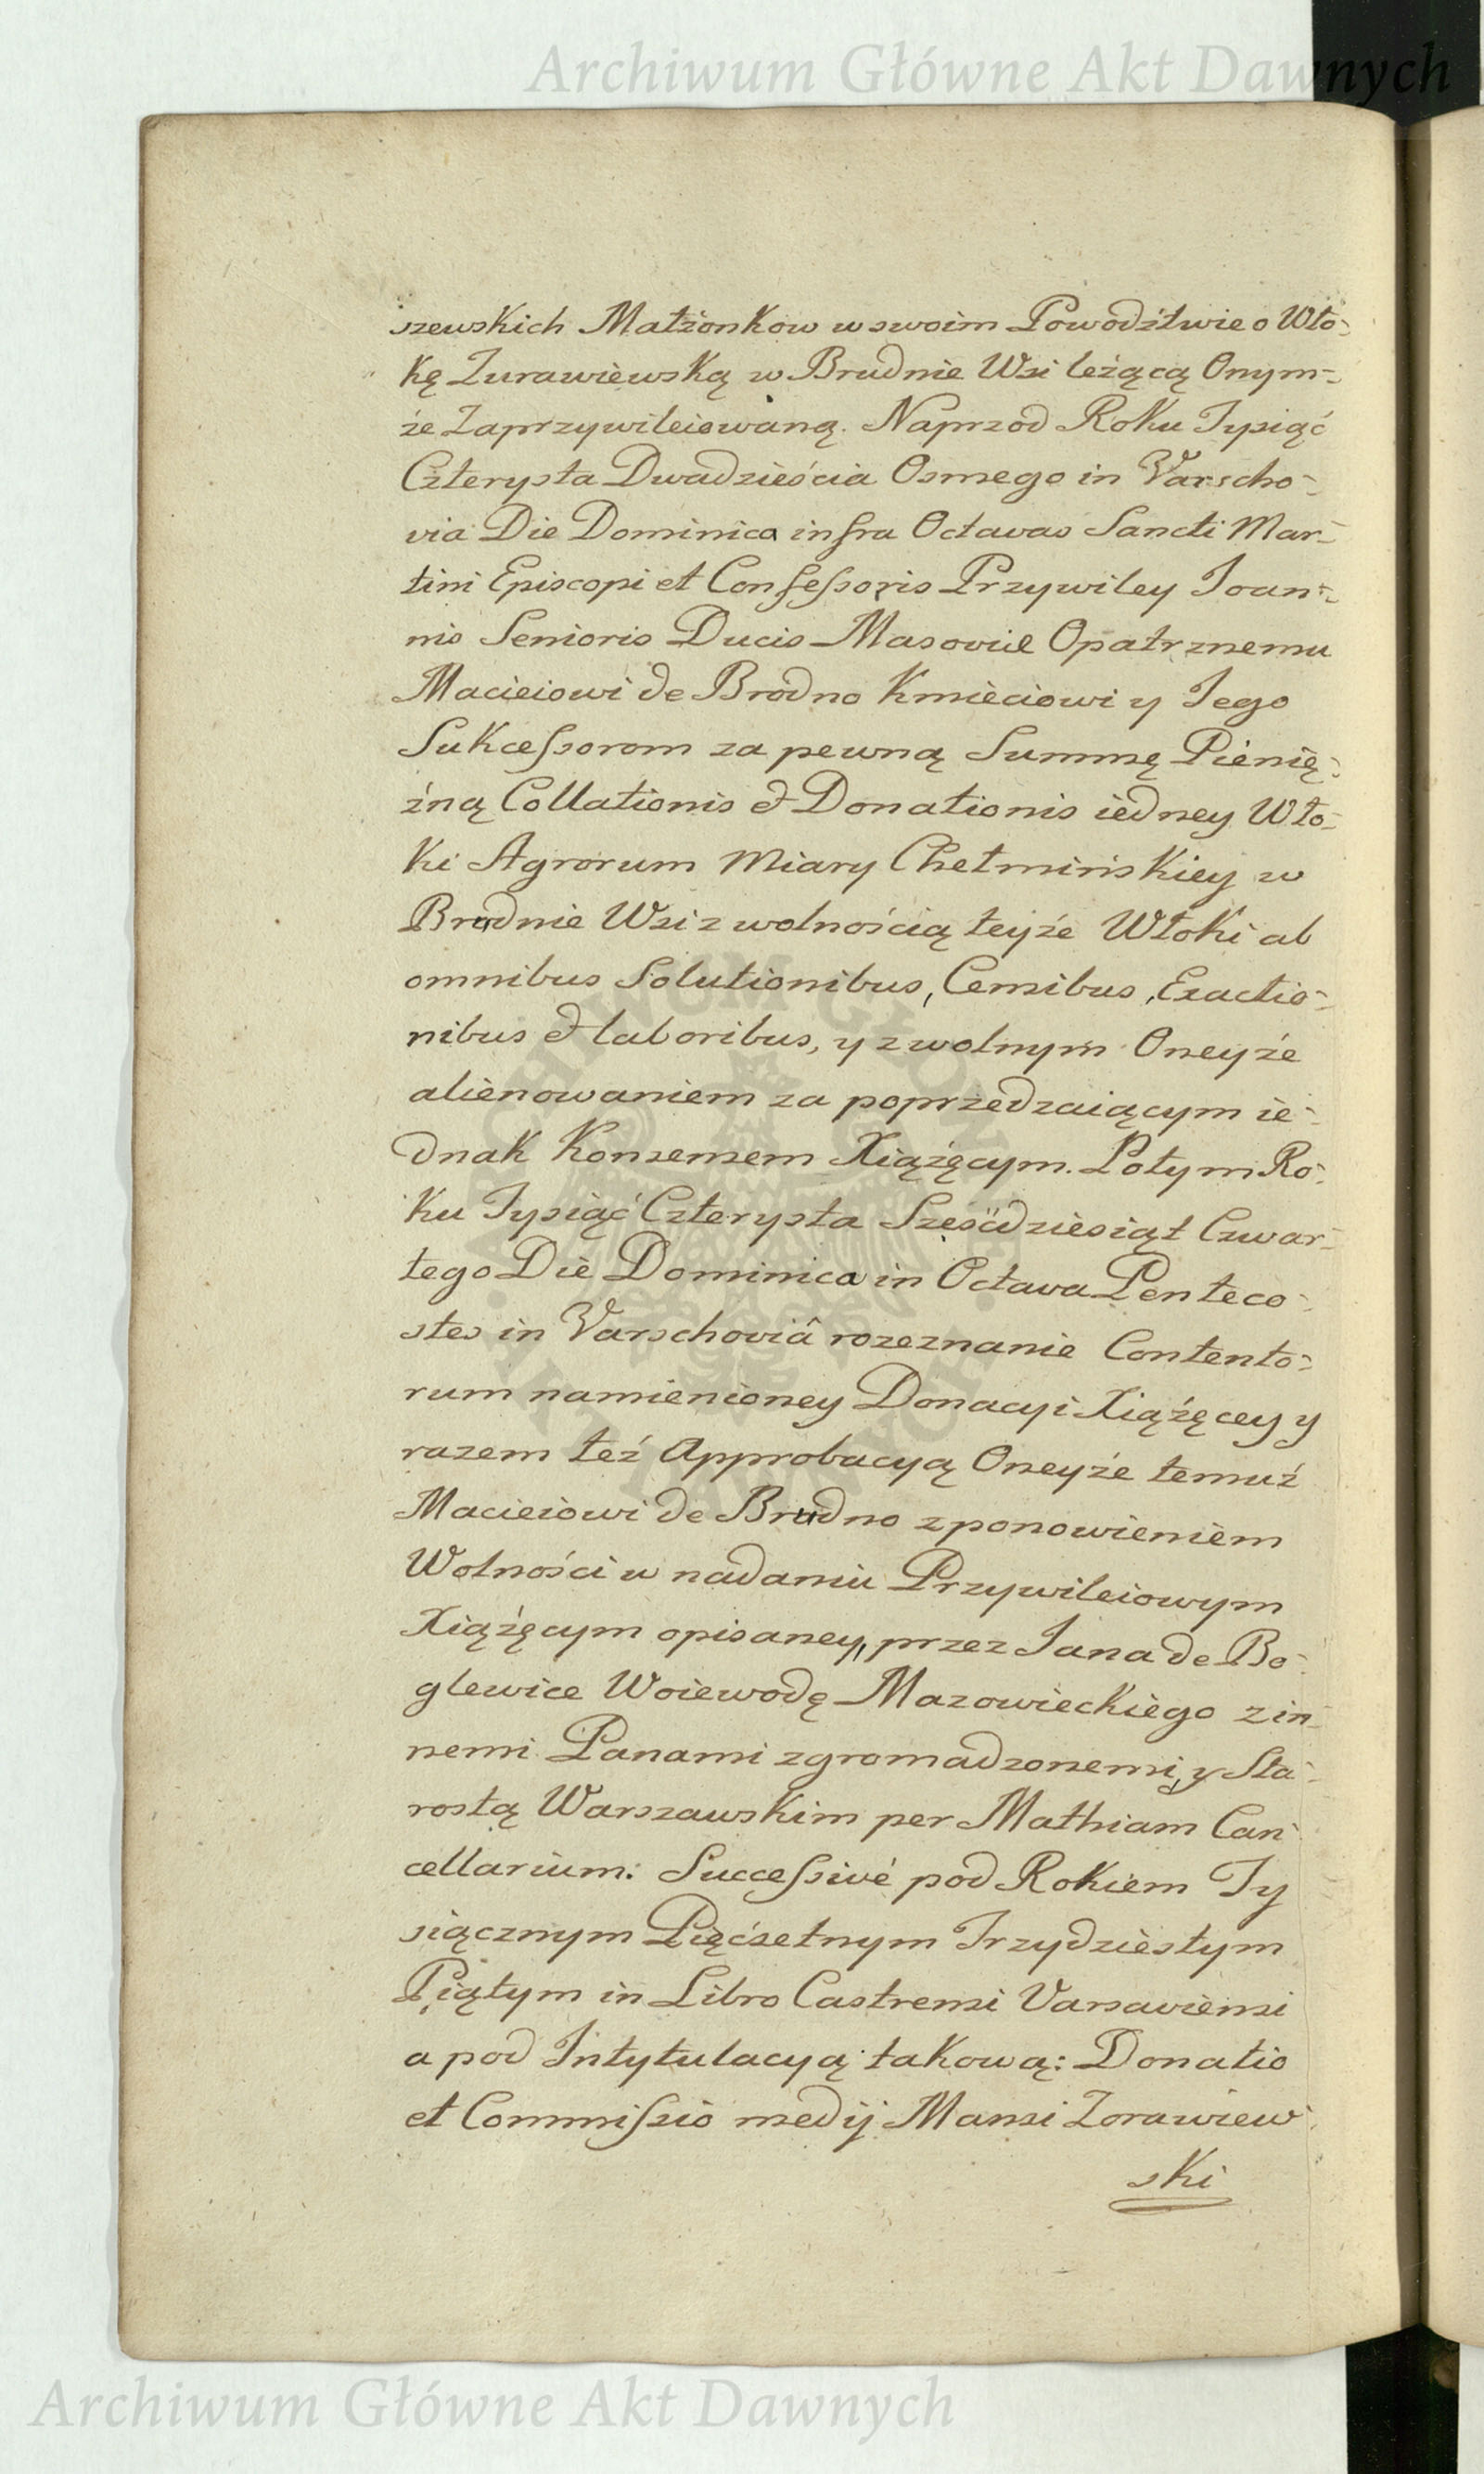 Archiwum Główne Akt Dawnych
szewskich Małżonkow w swoim Powodztwie o Wło-
kę Zurawiewską w Brudnie Wsi leżącą Onym-
że Zaprzywileiowaną. Naprzod Roku Tysiąć
Czterysta Dwadzieścia Osmego in Varscho-
via Die Dominica infra Octavas Sancti Mar-
tini Episcopi et Confeſsoris Przywiley Joan-
nis Senioris Ducis Masoviæ Opatrznemu
Macieiowi de Brodno Kmieciowi y Jego
Sukceſsorom za pewną Summę Pienię-
żną Collationis et Donationis iedney Wło-
ki Agrorum Miary Chełmińskiey w
Brudnie Wsi z wolnością teyże Włoki ab
omnibus Solutionibus, Censibus, Exactio-
nibus et laboribus, y z wolnym Oneyże
alienowaniem za poprzedzaiącym ie-
dnak Konsensem Xiążęcym. Potym Ro-
ku Tysiąć Czterysta Sześćdziesiąt Czwar-
tego Die Dominica in Octava Penteco-
stes in Varschoviâ rozeznanie Contento-
rum namienioney Donacyi Xiążęcey y
razem też Approbacyą Oneyże temuż
Macieiowi de Brudno z ponowieniem
Wolności w nadaniu Przywileiowym
Xiążęcym opisaney, przez Jana de Bo-
glewice Woiewodę Mazowieckiego z in-
nemi Panami zgromadzonemi, y Sta-
rostą Warszawskim per Mathiam Can-
cellarium: Succeſsivé pod Rokiem Ty
siącznym Pięćsetnym Trzydziestym
Piątym in Libro Castrensi Varsaviensi
a pod Intytulacyą takową: Donatio
et Commiſsio medij Mansi Zorawiew-
ski
Archiwum Główne Akt Dawnych